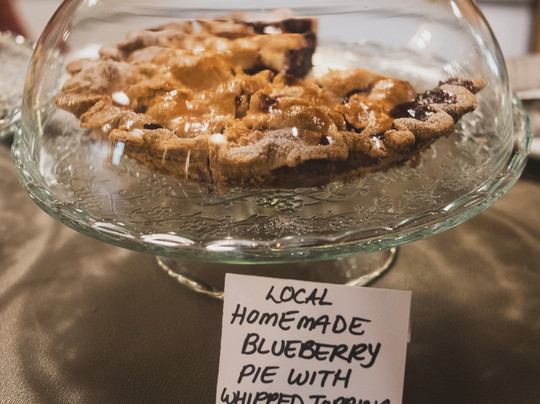 LOCAL
HOMEMADE
BLUEBERRY
PIE WITH
WHIPPED TOPPING